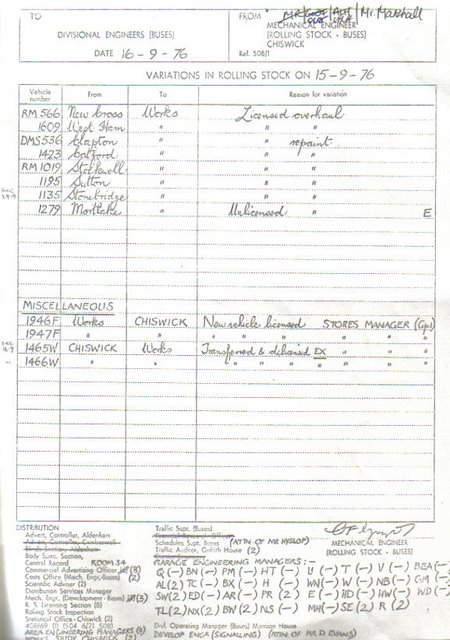 TO
DIVISIONAL ENGINEERS (BUSES)
DATE 16-9-76
FROM Mr. Marshall
MECHANICAL ENGINEER
(ROLLING STOCK - BUSES)
CHISWICK
Ref. 508/1
VARIATIONS IN ROLLING STOCK ON 15-9-76
Vehicle number From To Reason for variation
RM 566 New Cross Works Licensed overhaul
1609 West Ham " " "
DMS 536 Clapton " " repaint
1423 Catford " " "
RM 1019 Stockwell " " "
1195 Sutton " " "
1135 Stonebridge " " "
1279 Mortlake " Unlicensed " E
MISCELLANEOUS
1946F Works CHISWICK New vehicle licensed STORES MANAGER (Cpt)
1947F " " " " " " " "
1465W CHISWICK Works Transferred & delicensed EX " " "
1466W " " " " " " " " "
DISTRIBUTION
Advert. Controller, Aldenham
Advert. Controller, Camberwell
Blinds Section, Aldenham
Body Spec. Section,
Central Record ROOM 54
Commercial Advertising Officer (8)
Costs Office (Mech. Engr.-Buses) (2)
Scientific Adviser (2)
Distribution Services Manager
Mech. Engr. (Development - Buses) (3)
R. S. Licensing Section (8)
Rolling Stock Inspection
Statistical Office - Chiswick (2)
AREA ENGINEERING MANAGERS
Traffic Supt. (Buses)
Schedules Supt. Buses (ATTN OF MR HYSLOP)
Traffic Auditor, Griffith House (2)
MECHANICAL ENGINEER
(ROLLING STOCK - BUSES)
GARAGE ENGINEERING MANAGERS:-
Q (-) BN (-) PM (-) HT (-) U (-) T (-) V (-) BEA (-)
AL (2) TC (-) BX (-) H (-) WN (-) W (-) NB (-) GM (-)
SW (2) ED (-) AR (-) PR (2) E (-) HD (-) HW (-) WD (-)
TL (2) NX (2) BW (2) NS (-) MH (-) SE (2) R (2)
Divl. Operating Manager (Buses) Manian House
DEVELOP ENGR (SIGNALLING) (ATTN OF MR D EVANS)